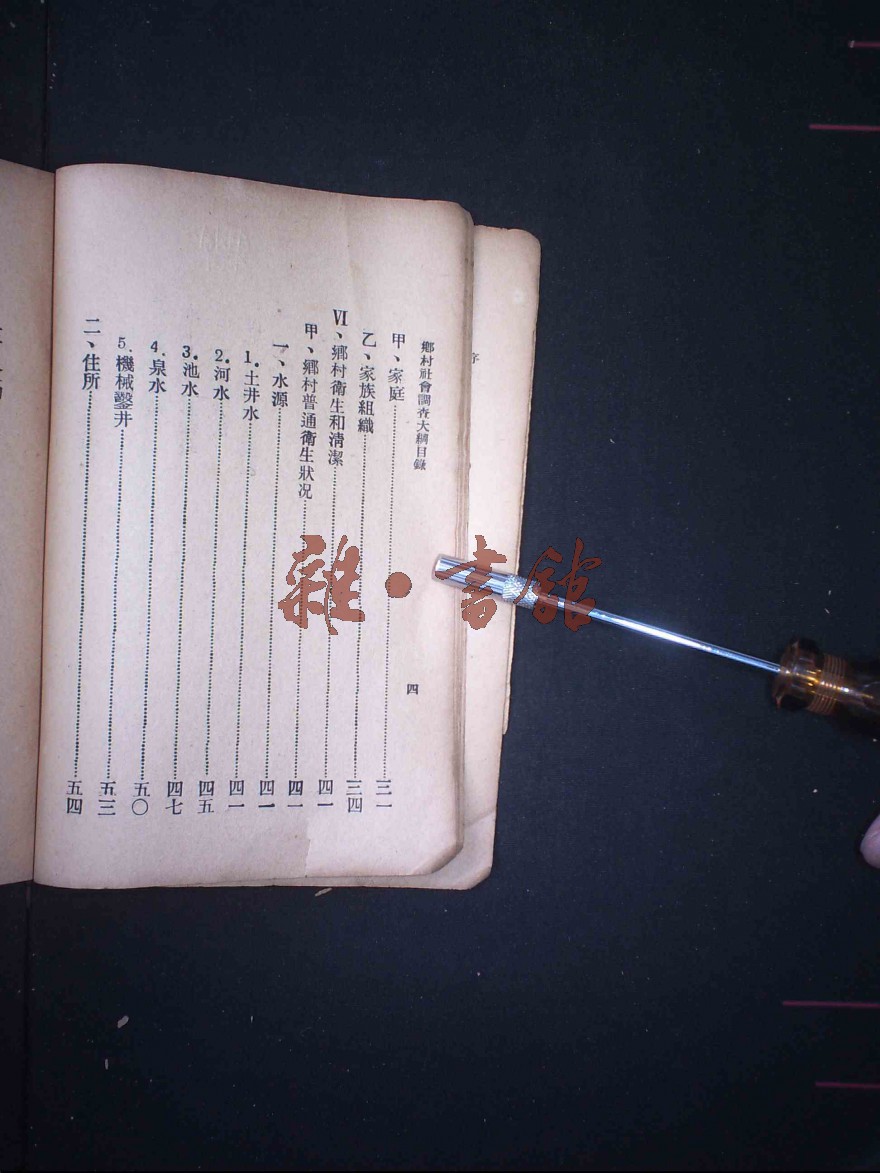 鄉村社會調查大綱目錄
四
甲、家庭……三一
乙、家族組織……三四
VI、鄉村衛生和清潔……四一
甲、鄉村普通衛生狀况……四一
一、水源……四一
1.土井水……四一
2.河水……四五
3.池水……四七
4.泉水……五〇
5.機械鑿井……五三
二、住所……五四
雜·書館